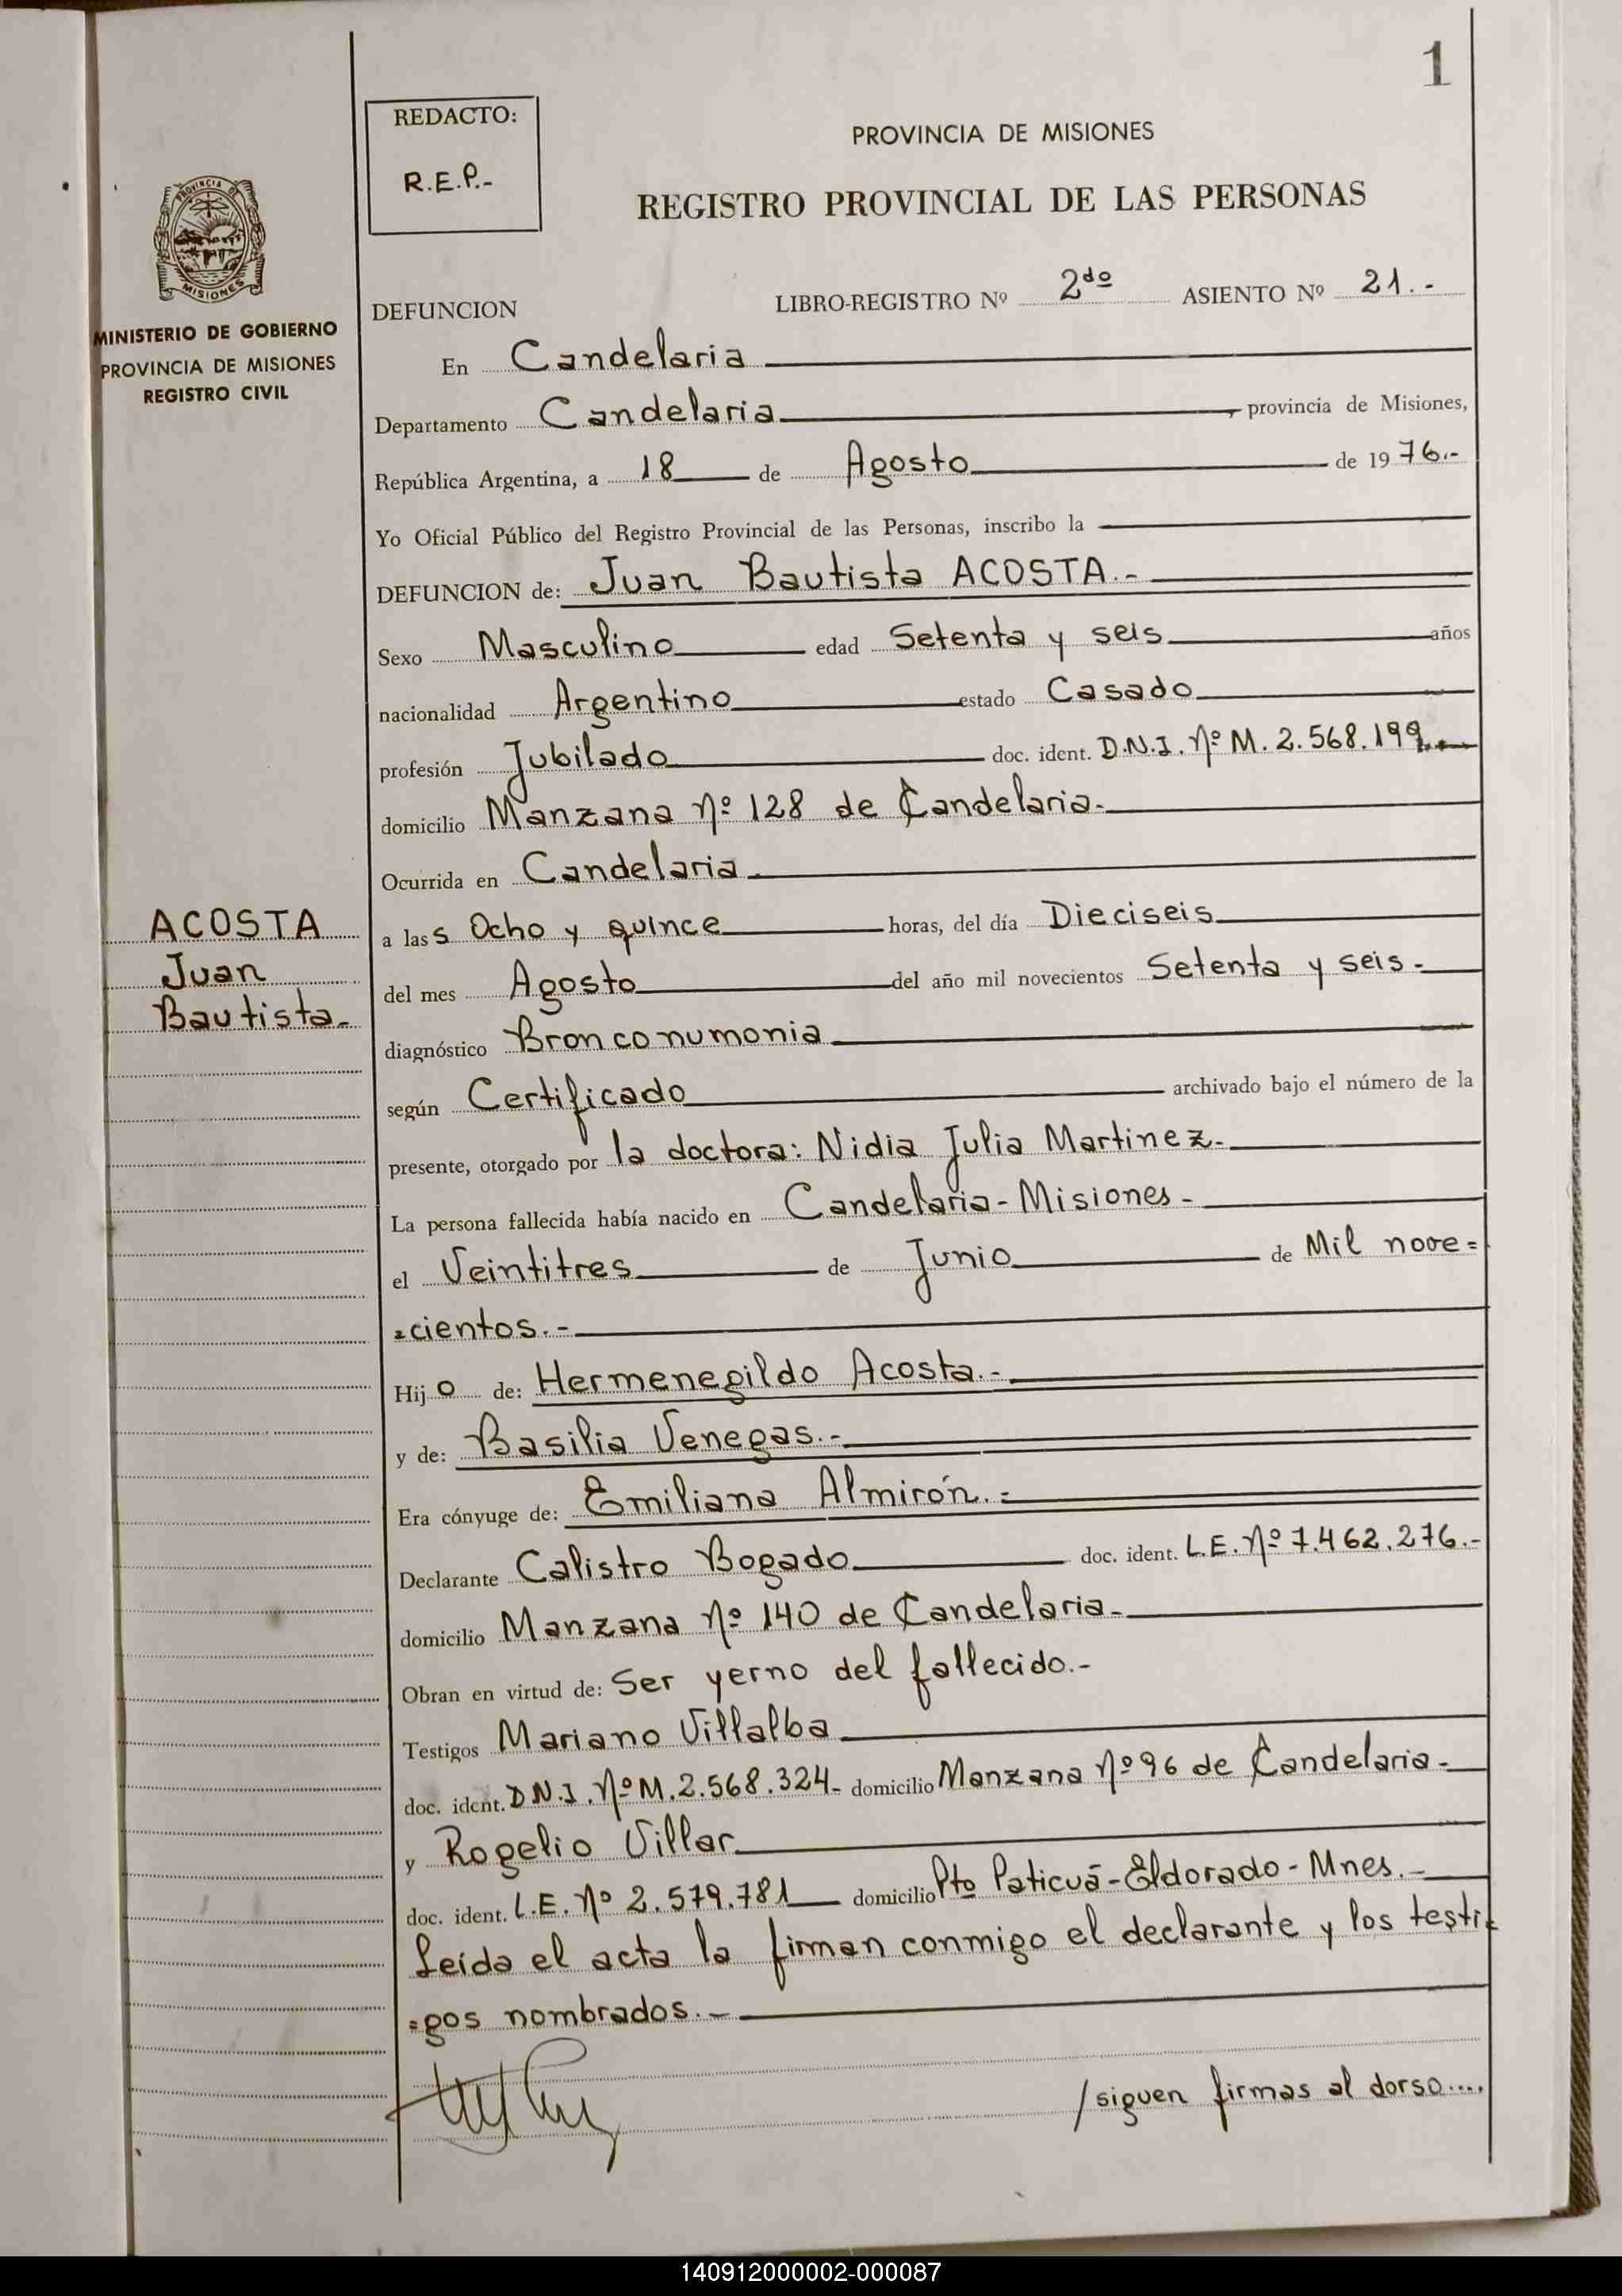 1
REDACTO:
R.E.P.-
PROVINCIA DE MISIONES
REGISTRO PROVINCIAL DE LAS PERSONAS
PROVINCIA DE
MISIONES
MINISTERIO DE GOBIERNO
PROVINCIA DE MISIONES
REGISTRO CIVIL
DEFUNCION LIBRO-REGISTRO Nº 2do ASIENTO Nº 21.-
En Candelaria
Departamento Candelaria, provincia de Misiones,
República Argentina, a 18 de Agosto de 1976.-
Yo Oficial Público del Registro Provincial de las Personas, inscribo la
DEFUNCION de: Juan Bautista ACOSTA.-
Sexo Masculino edad Setenta y seis años
nacionalidad Argentino estado Casado
profesión Jubilado doc. ident. D.N.I. Nº M. 2.568.199.-
domicilio Manzana Nº 128 de Candelaria.-
Ocurrida en Candelaria.
ACOSTA
Juan
Bautista.-
a las s Ocho y quince horas, del día Dieciseis
del mes Agosto del año mil novecientos Setenta y seis.-
diagnóstico Bronconumonia
según Certificado archivado bajo el número de la
presente, otorgado por la doctora: Nidia Julia Martinez.-
La persona fallecida había nacido en Candelaria-Misiones-
el Veintitres de Junio de Mil nove=
=cientos.-
Hijo de: Hermenegildo Acosta.-
y de: Basilia Venegas.-
Era cónyuge de: Emiliana Almirón.-
Declarante Calistro Bogado doc. ident. L.E. Nº 7.462.276.-
domicilio Manzana Nº 140 de Candelaria.-
Obran en virtud de: Ser yerno del fallecido.-
Testigos Mariano Villalba
doc. ident. D.N.I. Nº M. 2.568.324- domicilio Manzana Nº 96 de Candelaria-
y Rogelio Villar
doc. ident. L.E. Nº 2.579.781 domicilio Pto Paticuá-Eldorado-Mnes.-
Leída el acta la firman conmigo el declarante y los testi=
=gos nombrados.-
/siguen firmas al dorso....
140912000002-000087